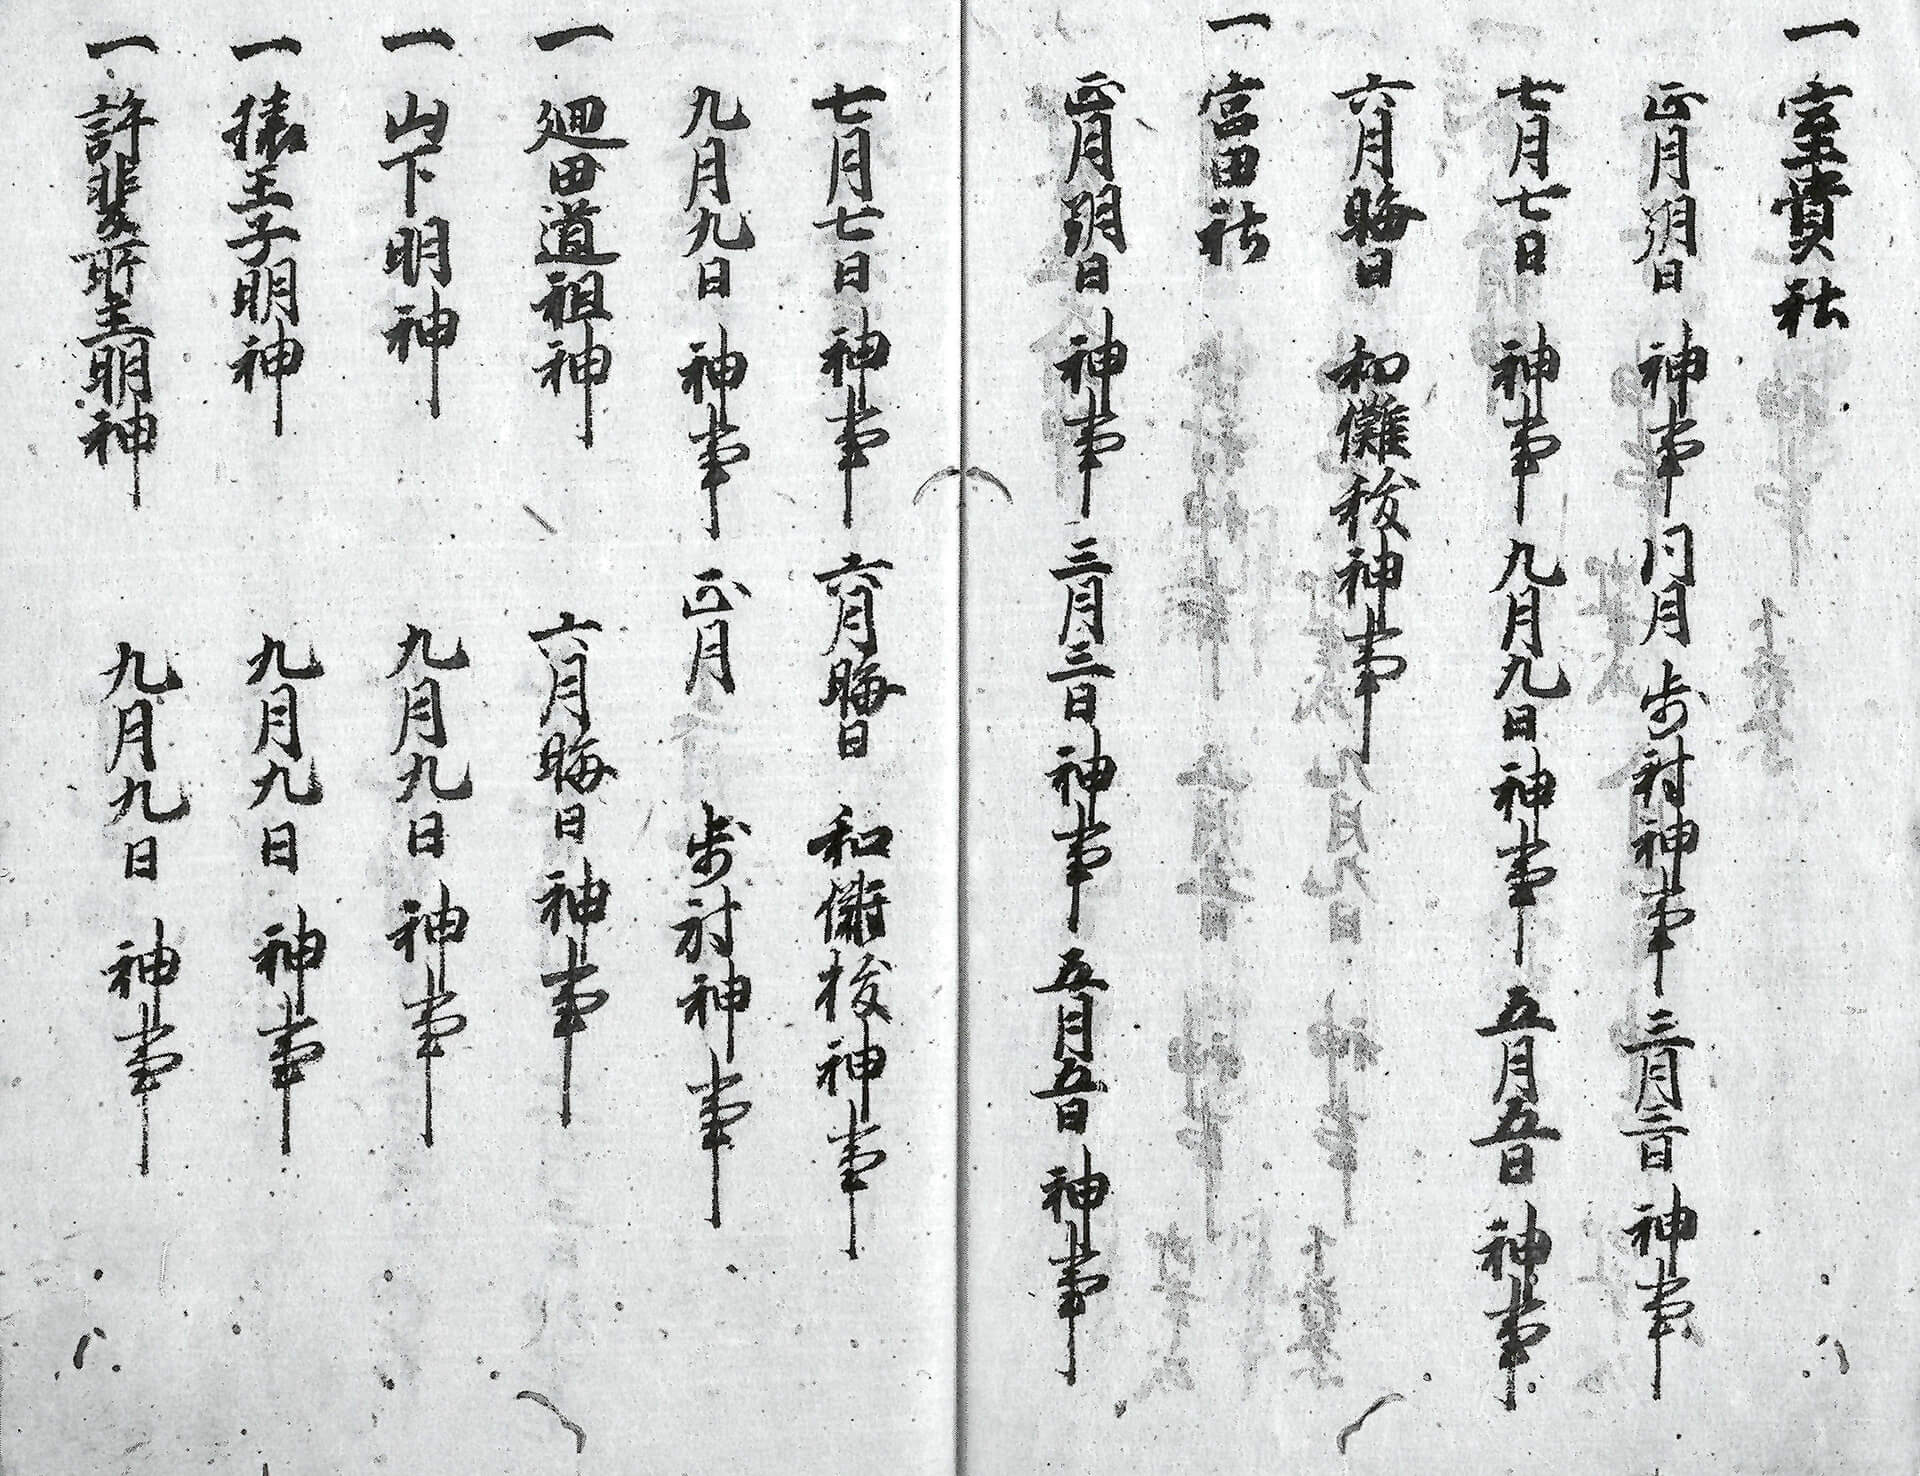 一室貴社
正月朔日　神事　同月　歩射神事　三月三日　神事
七月七日　神事　九月九日　神事　五月五日　神事
六月晦日　和儺祓神事
一宮田社
正月朔日　神事　三月三日　神事　五月五日　神事
七月七日　神事　六月晦日　和儺祓神事
九月九日　神事　正月　歩射神事
一廻田道祖神　六月晦日　神事
一山下明神　九月九日　神事
一猿王子明神　九月九日　神事
一許斐所主明神　九月九日　神事